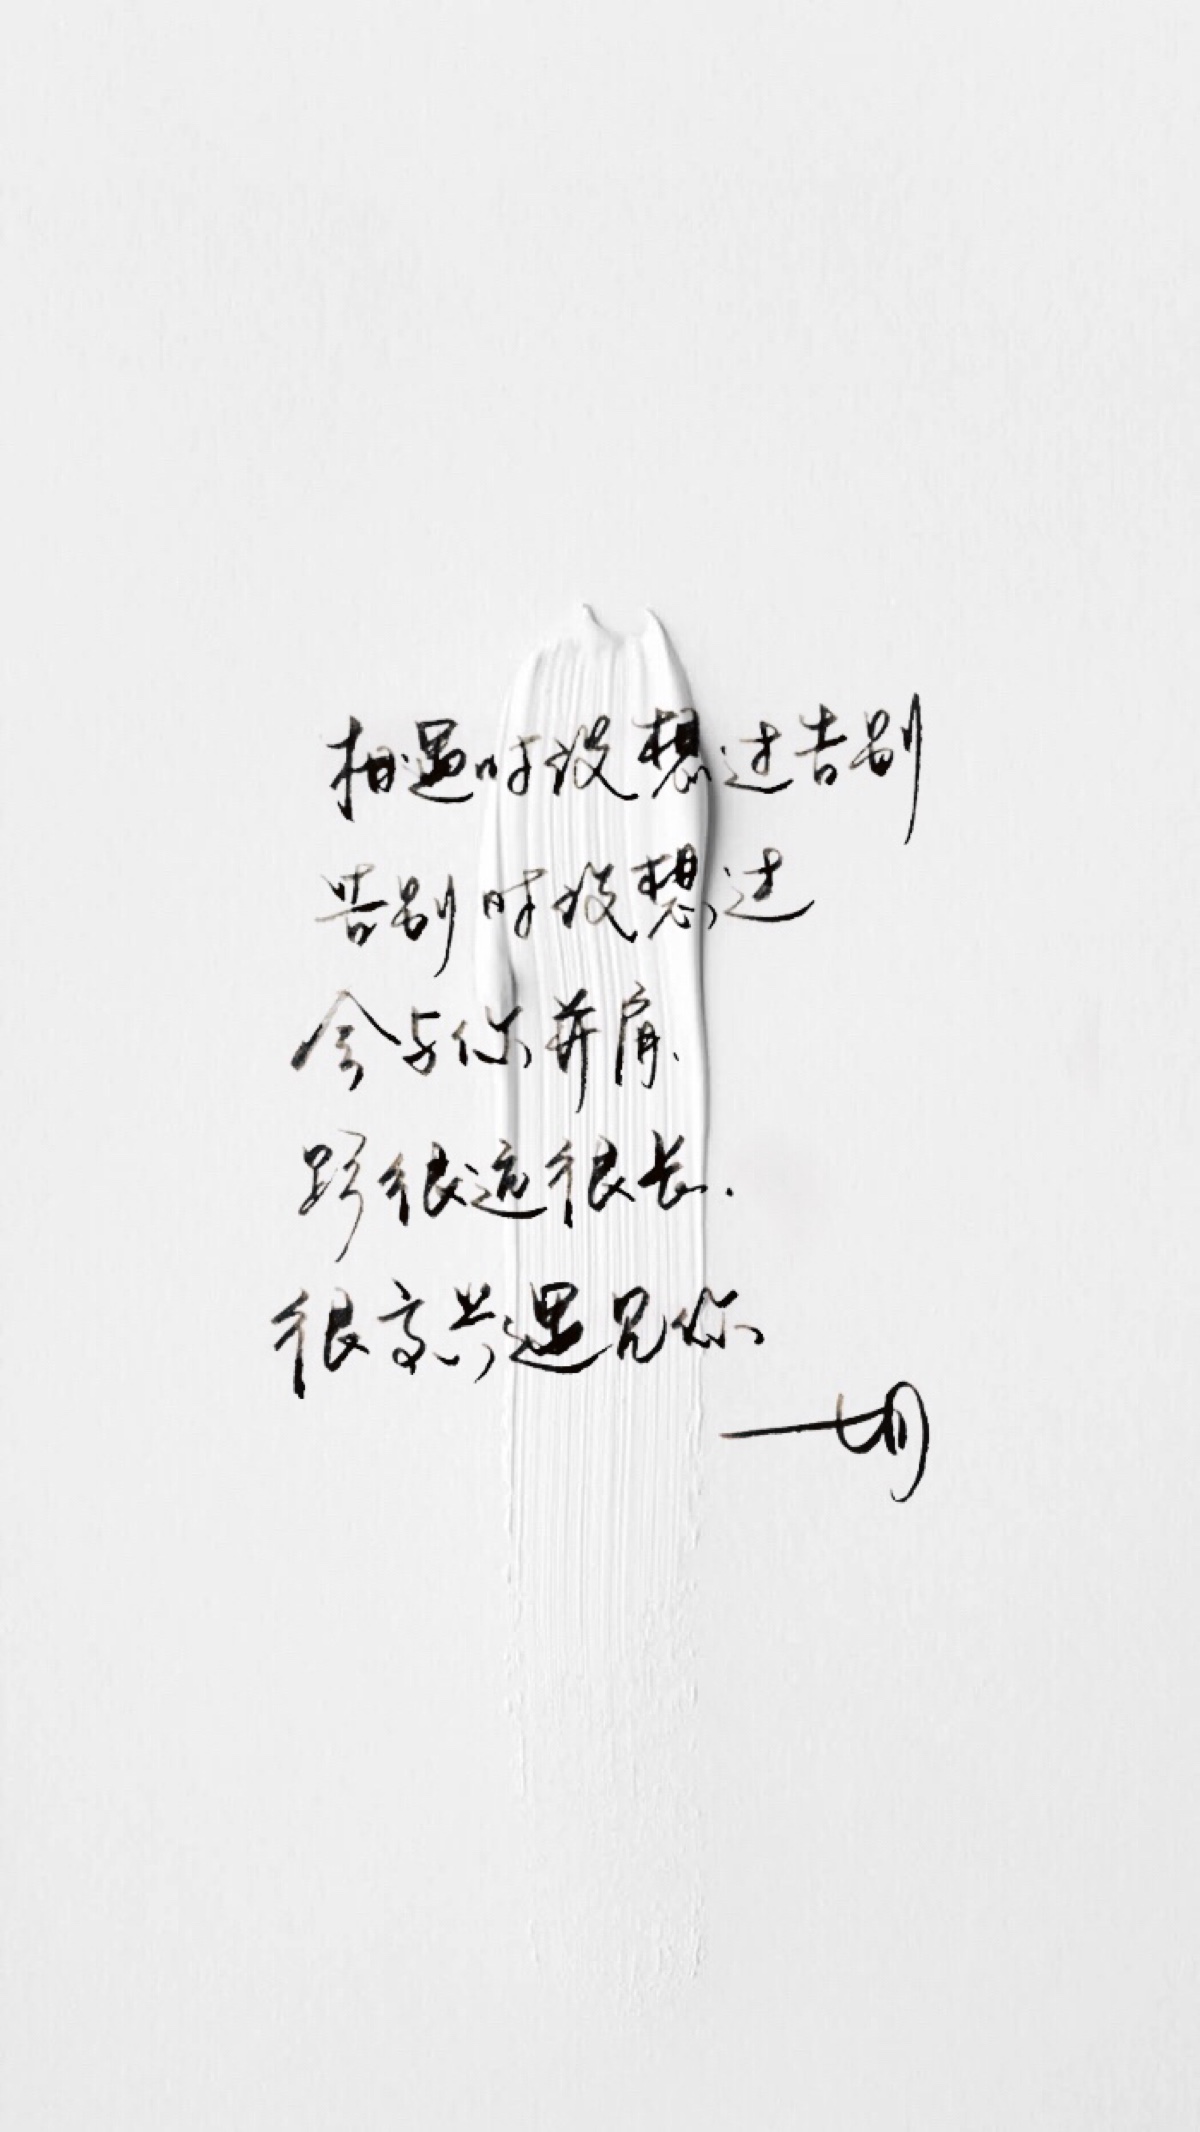 相遇时没想过告别
告别时没想过
会与你并肩.
路很远很长.
很高兴遇见你